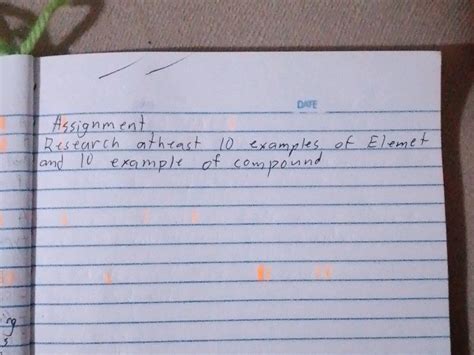 DATE
Assignment
Research atheast 10 examples of Elemet
and 10 example of compound
ng
s